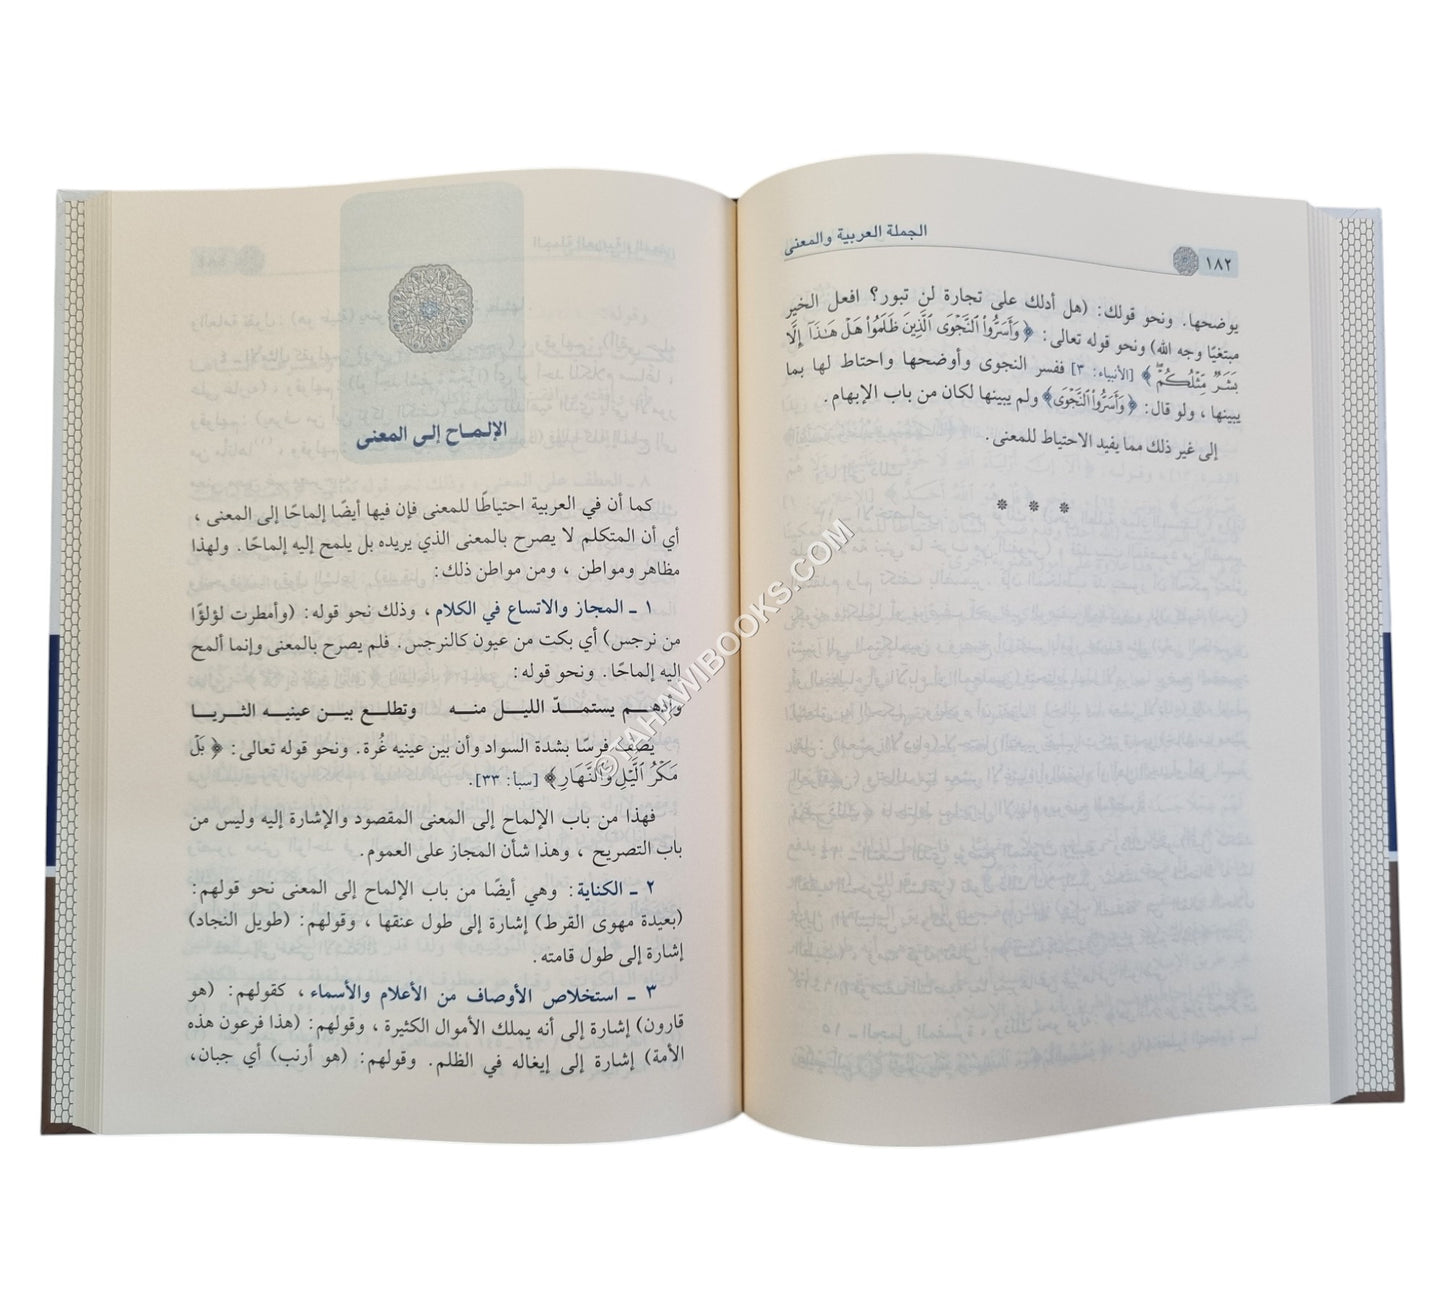 الجملة العربية والمعنى
١٨٢
يوضحها. ونحو قولك: (هل أدلك على تجارة لن تبور؟ افعل الخير
مبتغيًا وجه الله) ونحو قوله تعالى: ﴿وَأَسَرُّوا۟ ٱلنَّجْوَى ٱلَّذِينَ ظَلَمُوا۟ هَلْ هَـٰذَآ إِلَّا
بَشَرٌ مِّثْلُكُمْ﴾ [الأنبياء: ٣] ففسر النجوى وأوضحها واحتاط لها بما
يبينها ، ولو قال: ﴿وَأَسَرُّوا۟ ٱلنَّجْوَى﴾ ولم يبينها لكان من باب الإبهام.
إلى غير ذلك مما يفيد الاحتياط للمعنى.
* * *
الإلماح إلى المعنى
كما أن في العربية احتياطًا للمعنى فإن فيها أيضًا إلماحًا إلى المعنى ،
أي أن المتكلم لا يصرح بالمعنى الذي يريده بل يلمح إليه إلماحًا. ولهذا
مظاهر ومواطن ، ومن مواطن ذلك:
١ ـ المجاز والاتساع في الكلام ، وذلك نحو قوله: (وأمطرت لؤلؤًا
من نرجس) أي بكت من عيون كالنرجس. فلم يصرح بالمعنى وإنما ألمح
إليه إلماحًا. ونحو قوله:
وأدهـم يستمـدّ الليـل منـه وتطلـع بيـن عينيـه الثريـا
يصف فرسًا بشدة السواد وأن بين عينيه غُرة. ونحو قوله تعالى: ﴿بَلْ
مَكْرُ ٱلَّيْلِ وَٱلنَّهَارِ﴾ [سبأ: ٣٣].
فهذا من باب الإلماح إلى المعنى المقصود والإشارة إليه وليس من
باب التصريح ، وهذا شأن المجاز على العموم.
٢ ـ الكناية: وهي أيضًا من باب الإلماح إلى المعنى نحو قولهم:
(بعيدة مهوى القرط) إشارة إلى طول عنقها ، وقولهم: (طويل النجاد)
إشارة إلى طول قامته.
٣ ـ استخلاص الأوصاف من الأعلام والأسماء ، كقولهم: (هو
قارون) إشارة إلى أنه يملك الأموال الكثيرة ، وقولهم: (هذا فرعون هذه
الأمة) إشارة إلى إيغاله في الظلم. وقولهم: (هو أرنب) أي جبان،
©TAHAWIBOOKS.COM